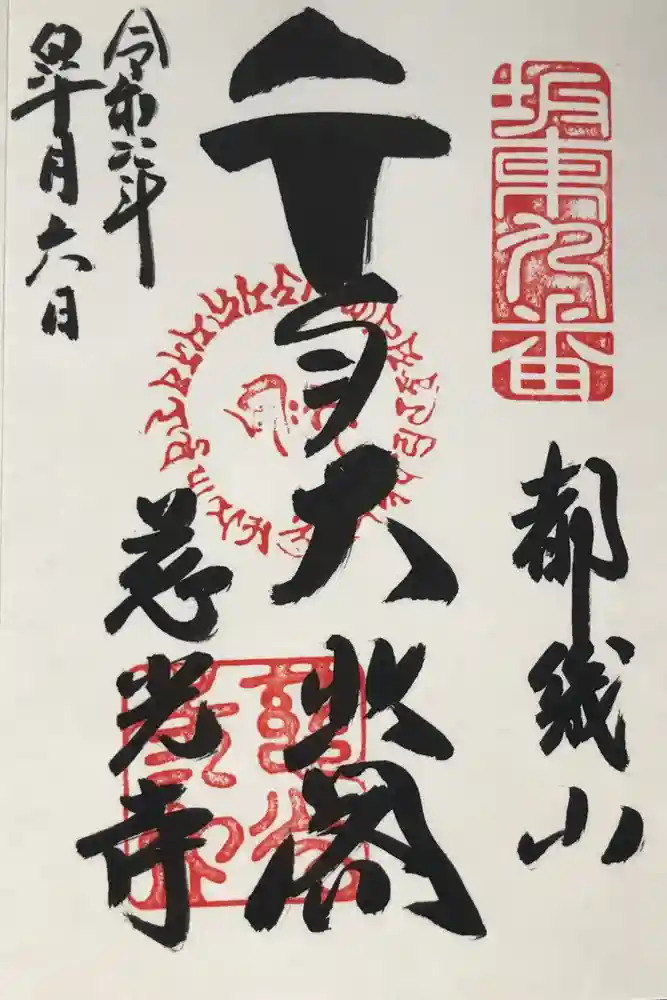 坂東九番
都幾山
千手大悲閣
慈光寺
令和六年
皐月六日